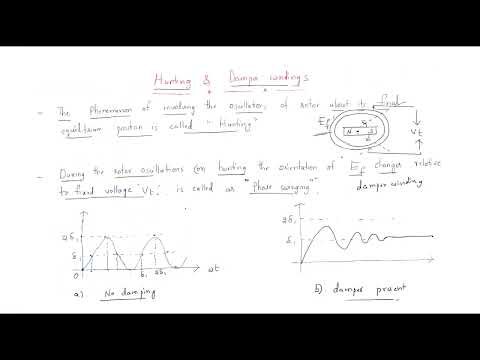 Hunting & Damper windings
- The Phenomenon of involving the oscillations of rotor about its final
equilibrium position is called "Hunting"
Ef
N S
Vt
damper winding
- During the rotor oscillations (or) hunting the orientation of "Ef changes relative
to fixed voltage 'Vt' is called as "Phase swinging".
2δ1
δ1
0
δ1
2δ1
ωt
a) No damping
2δ1
δ1
b) damper present